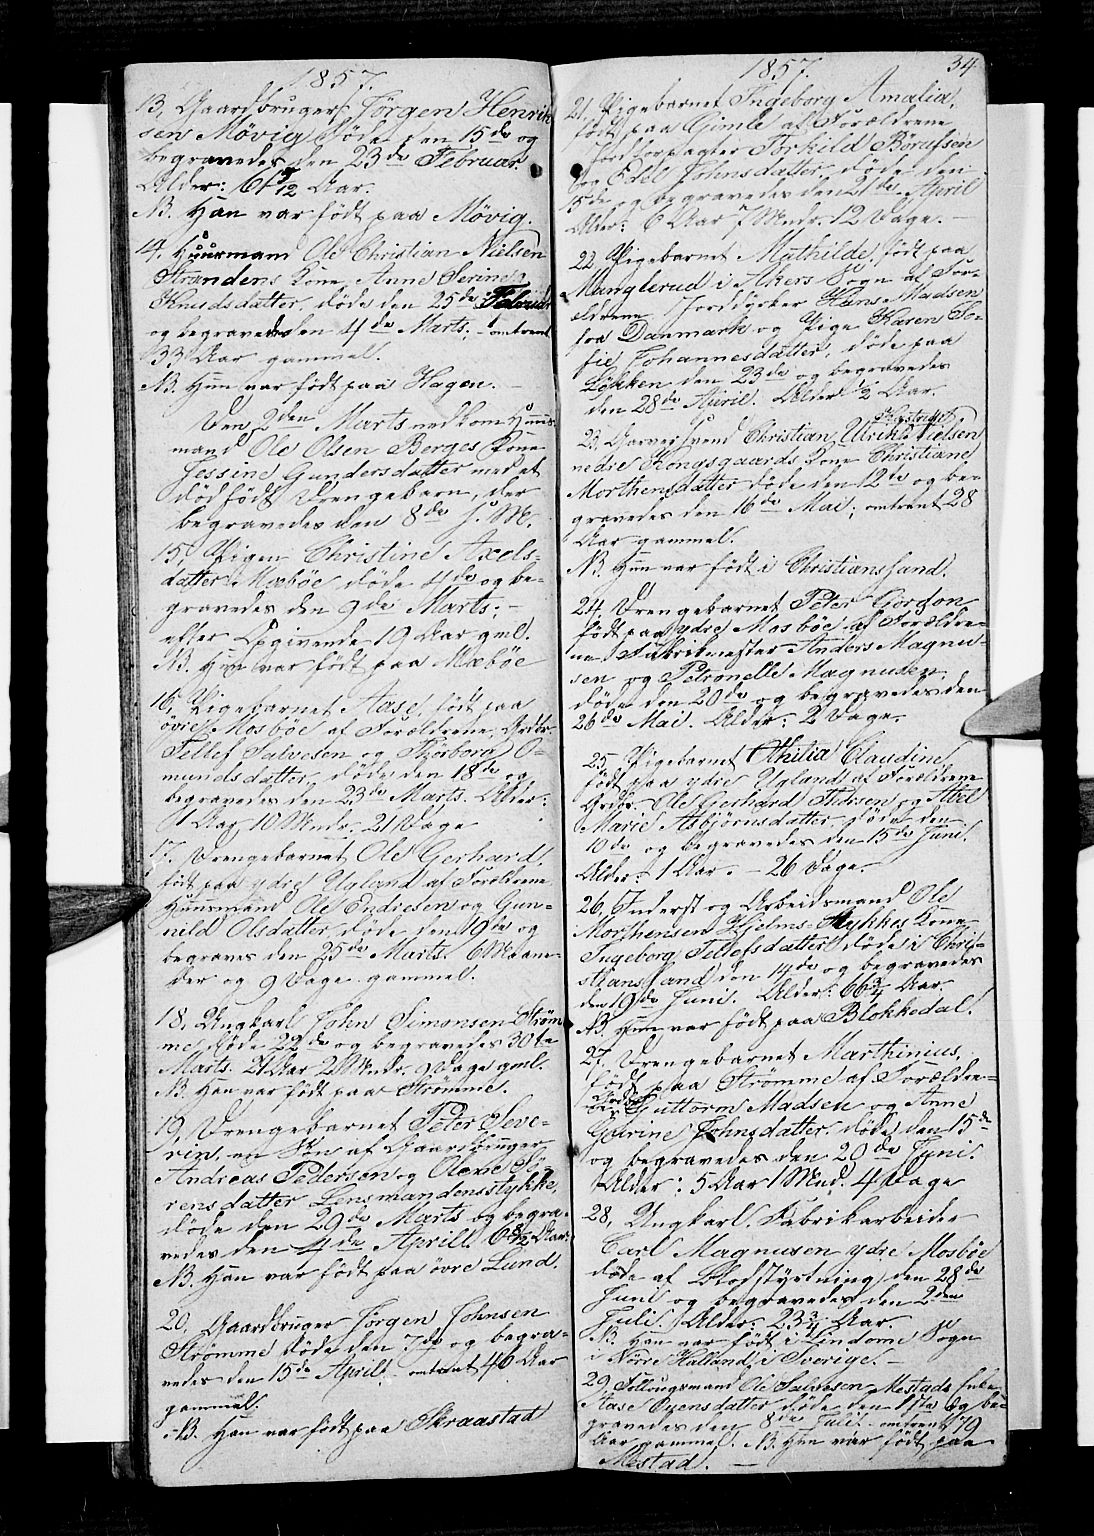 1857.
13, Gaardbruger Jørgen Henrik
sen Møvig døde den 15de og
begravedes den 23de Februar.
Alder: 61 5/12 Aar.
NB. Han var født paa Møvig.
14. Huusmand Ole Christian Nielsen
Strandens Kone Anne Serine
Knudsdatter, døde den 25de Februar
og begravedes den 4de Marts, omtrent
33 Aar gammel.
NB. Hun var født paa Hagen. —
Den 2den Marts nedkom Huus
mand Ole Olsen Berges Kone
Jessine Gundersdatter med et
dødfødt Drengebarn, der
begravedes den 8de s. M.
15, Pigen Christine Axels-
datter Mæbøe døde 4de og be-
gravedes den 9de Marts; —
efter Opgivende 19 Aar gml.
NB. Hun var født paa Mæbøe
16, Pigebarnet Aase, født paa
øvre Mosbøe af Forældrene, Grdbr.
Tellef Salvesen og Thorborg O-
mundsdatter, døde den 18de og
begravedes den 23de Marts. Alder:
1 Aar, 10 Mndr. 21 Dage
17. Drengebarnet Ole Gerhard,
født paa ydre Ugland af Forældrene
Huusmand Ole Endresen og Gun-
nild Olsdatter, døde den 19de og
begraves den 25de Marts. 6 Maane-
der og 9 Dage gammel.
18, Ungkarl John Simonsen Strøm
me, døde 22de og begravedes 30te
Marts. 21 Aar 2 Mndr. 9 Dage gml.
NB. Han var født paa Strømme.
19, Drengebarnet Peter Seve-
rin, en Søn af Gaardbruger
Andreas Pedersen og Olene Sø-
rensdatter Lensmandensstykke,
døde den 29de Marts og begra-
vedes den 4de Aprill. 6 8/12 Aar.
NB. Han var født paa øvre Lund.
20, Gaardbruger Jørgen Johnsen
Strømme døde den 7de og begra-
vedes den 15de April. omtrent 46 Aar
gammel.
NB. Han var født paa Skraastad
1857.
34
21, Pigebarnet Ingeborg Amalia,
født paa Gimle af Forældrene
Jordforpagter Torkild Børufsen
og Edel Johnsdatter, døde den
15de og begravedes den 21de April
Alder: 6 Aar 7 Mndr. 12 Dage. —
22 Pigebarnet Mathilde, født paa
Manglerud i Akers Sogn af For-
ældrene Jorddyrker Hans Madsen
fra Danmark og Pige Karen So-
fie Johannesdatter, døde paa
Løkken den 23de og begravedes
den 28de April. Alder 1/2 Aar.
23, Garversvend Christian Ulrik Nielsen
nedre Kongsgaards Kone Christiane
Morthensdatter døde den 12te og be-
gravedes den 16de Mai; omtrent 28
Aar gammel.
NB. Hun var født i Christianssand.
24. Drengebarnet Peter Gordon
født paa ydre Mosbøe af Forældre-
ne Fabrikmester Anders Magnu-
sen og Petronelle Magnusen,
døde den 20de og begravedes den
26de Mai. Alder: 2 Dage.
25, Pigebarnet Othilia Claudine,
født paa ydre Ugland af Forældrene
Grdbr. Ole Gerhard Andersen og Abel
Marie Asbjørnsdatter, døde den
10de og begravedes den 15de Juni.
Alder: 1 Aar. — 26 Dage.
26, Inderst og Arbeidsmand Ole
Morthensen Hjelms-Stykkes Kone
Ingeborg Tellefsdatter døde i Chri-
stianssand den 14de og begravedes
den 19de Juni. Alder: 66 3/4 Aar.
NB. Hun var født paa Blokkedal.
27. Drengebarnet Marthinius,
født paa Strømme af Forældre-
ne Grdbr. Guttorm Madsen og Anne
Gurine Johnsdatter. døde den 15de
og begravedes den 20de Juni.
Alder: 5 Aar 1 Mnd. 4 Dage
28, Ungkarl, Fabrikarbeider
Carl Magnusen ydre Mosbøe
døde af Blodstyrtning den 28de
Juni og begravedes den 2den
Juli. Alder: 23 3/4 Aar.
NB. Han var født i Lindome Sogn
i Nørre Halland, i Sverige. —
29, Føllougsmand Ole Salvesen Mestads Enke
Aase Evensdatter døde den 1ste og be-
gravedes den 8de Juli. omtrent 79
Aar gammel. NB. Hun var født paa
Mestad. —